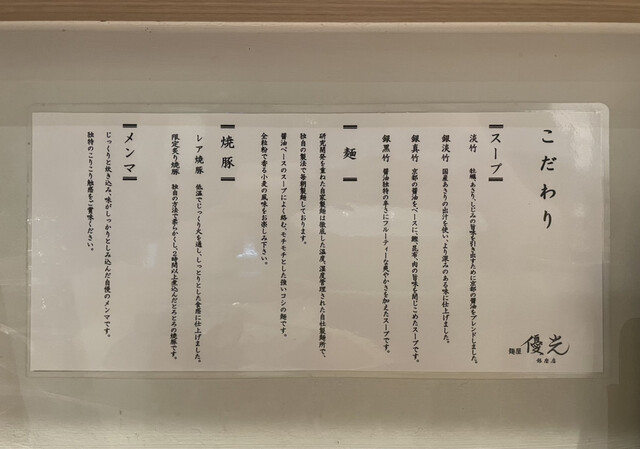 こだわり
スープ
淡竹 牡蠣、あさり、しじみの旨味を引き出すために京都の醤油をブレンドしました。
銀淡竹 国産あさりの出汁を使い、より深みのある味に仕上げました。
銀真竹 京都の醤油をベースに、鰹、昆布、肉の旨味を閉じこめたスープです。
銀黒竹 醤油独特の辛さにフルーティーな爽やかさを加えたスープです。
麺
研究開発を重ねた自家製麺は徹底した温度、湿度管理された自社製麺所で、
独自の製法で毎朝製麺しております。
醤油ベースのスープによく絡む、モチモチとした強いコシの麺です。
全粒粉で香る小麦の風味をお楽しみ下さい。
焼豚
レア焼豚 低温でじっくり火を通し、しっとりとした食感に仕上げました。
限定炙り焼豚 独自の方法で柔らかくし、2時間以上煮込んだとろとろの焼豚です。
メンマ
じっくりと炊き込み、味がしっかりとしみ込んだ自慢のメンマです。
独特のこりこり触感をご賞味ください。
麺屋 優光